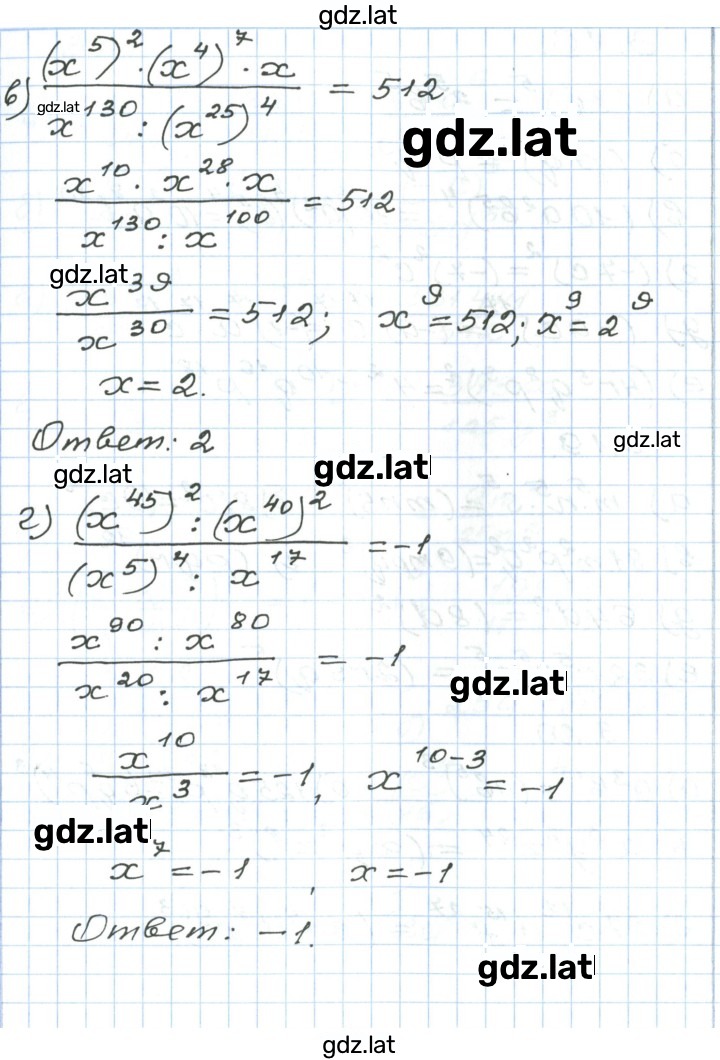 gdz.lat
в) (x^5)^2 · (x^4)^7 · x / x^130 : (x^25)^4 = 512
gdz.lat
gdz.lat
x^10 · x^28 · x / x^130 : x^100 = 512
gdz.lat
x^39 / x^30 = 512; x^9 = 512; x^9 = 2^9
x = 2.
Ответ: 2
gdz.lat
gdz.lat
gdz.lat
г) (x^45)^2 : (x^40)^2 / (x^5)^4 : x^17 = -1
x^90 : x^80 / x^20 : x^17 = -1
gdz.lat
x^10 / x^3 = -1, x^10-3 = -1
gdz.lat
x^7 = -1, x = -1
Ответ: -1.
gdz.lat
gdz.lat